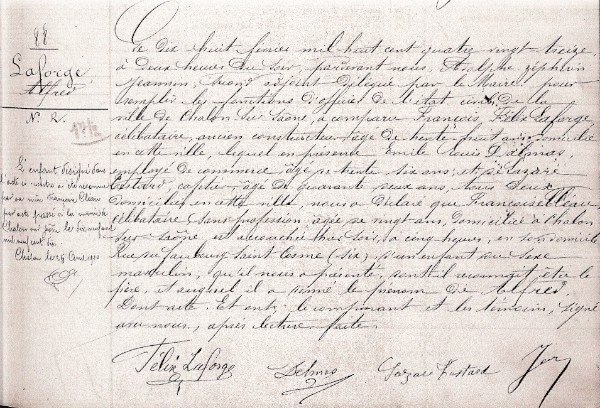 88
Laforge
Alfred
N. R.
Le Dix huit février mil huit cent quatre vingt treize,
à deux heures du soir, par devant nous,
adjoint Délégué par le Maire pour
remplir les fonctions d'officier de l'état civil de la
ville de Chalon sur Saône, a comparu François, Félix Laforge,
célibataire, ancien constructeur, âgé de trente huit ans, domicilié
en cette ville, lequel en présence Emile Louis Delmas,
employé de commerce âgé de trente six ans, et de Lazare
âgé de quarante deux ans, tous deux
domiciliés en cette ville, nous a déclaré que Françoise
célibataire, sans profession âgée de vingt ans, domiciliée à Chalon
sur Saône est accouchée hier soir, à cinq heures, en son domicile
Rue du faubourg Saint Cosme (six), d'un enfant du sexe
masculin, qu'il nous a présenté, dont il reconnaît être le
père, et auquel il a donné le prénom de Alfred.
Dont acte. Et ont, le comparant et les témoins, signé
avec nous, après lecture faite.
L'enfant désigné dans
l'acte ci-contre a été reconnu
par sa mère
par acte passé à la mairie de
Chalon
mil neuf cent
Chalon
Félix Laforge
Delmas
Lazare